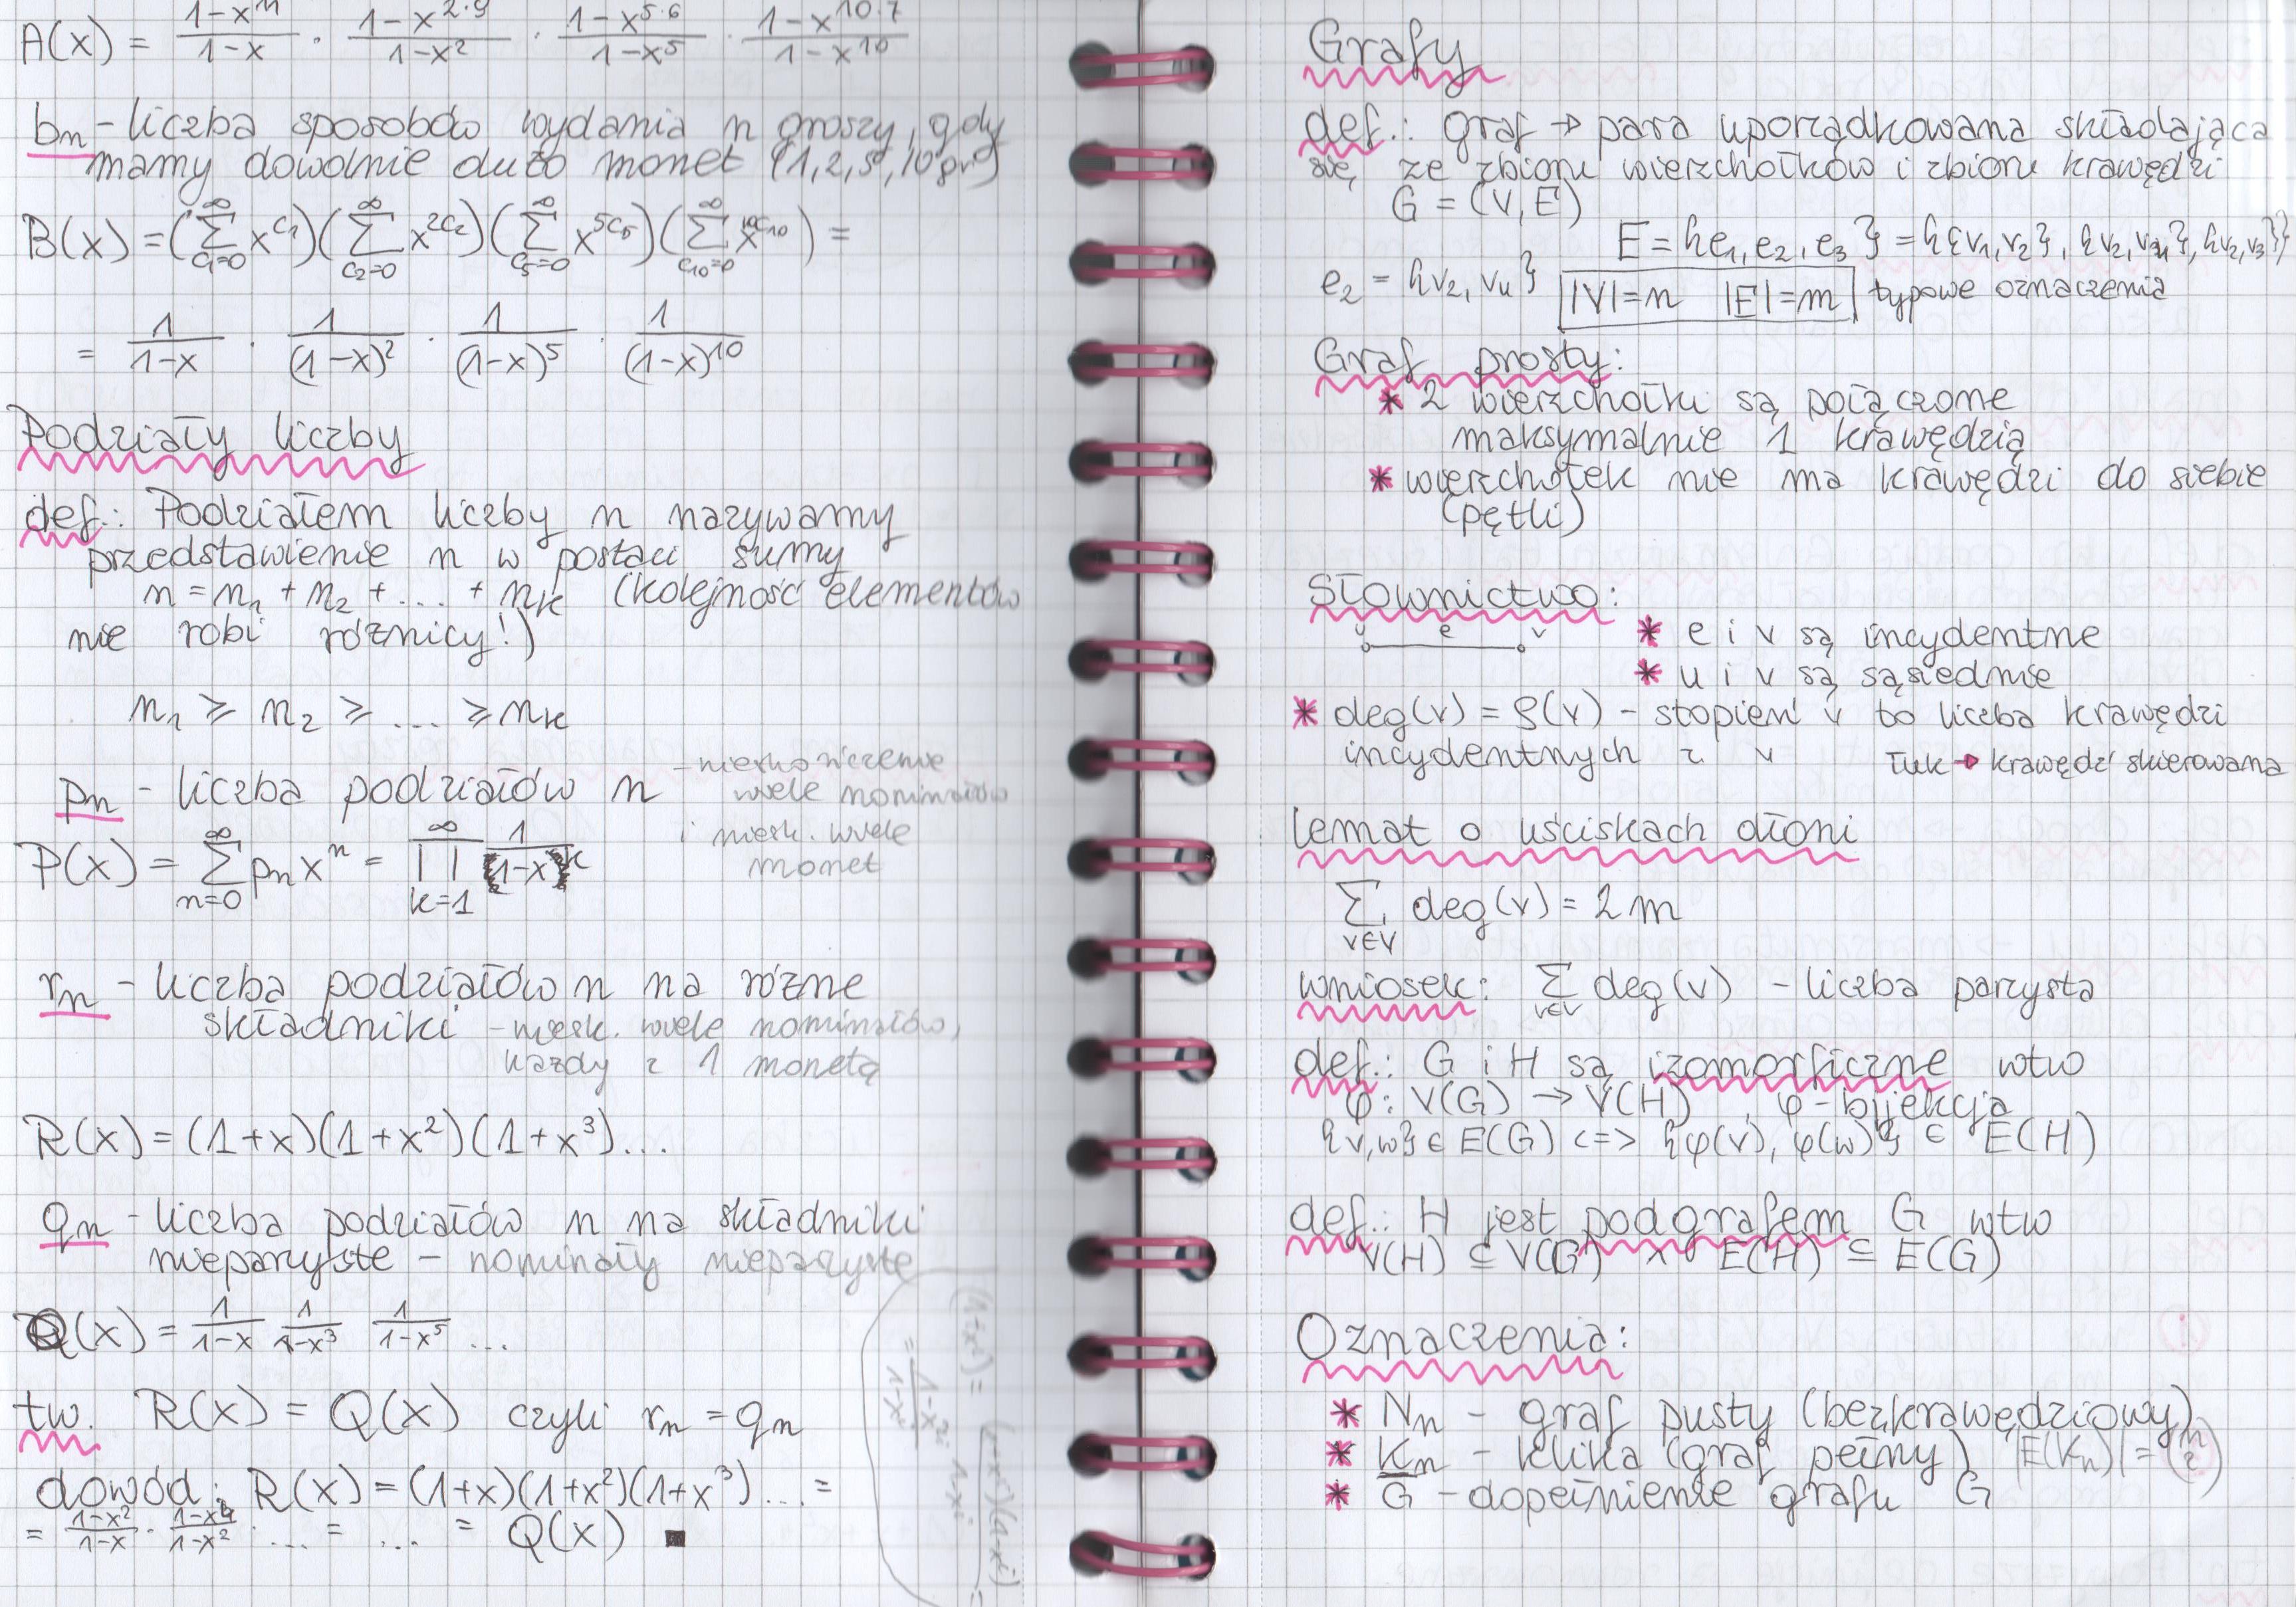 A(x) = \frac{1-x^{11}}{1-x} · \frac{1-x^{2·9}}{1-x^2} · \frac{1-x^{5·6}}{1-x^5} · \frac{1-x^{10·7}}{1-x^{10}}
b_n - liczba sposobów wydania n groszy, gdy
mamy dowolnie dużo monet (1,2,5,10 gr)
B(x) = (\sum_{c_1=0}^{∞} x^{c_1})(\sum_{c_2=0}^{∞} x^{2c_2})(\sum_{c_5=0}^{∞} x^{5c_5})(\sum_{c_{10}=0}^{∞} x^{10c_{10}}) =
= \frac{1}{1-x} · \frac{1}{(1-x)^2} · \frac{1}{(1-x)^5} · \frac{1}{(1-x)^{10}}
Podziały liczby
def.: Podziałem liczby n nazywamy
przedstawienie n w postaci sumy
n = n_1 + n_2 + ... + n_k (kolejność elementów
nie robi różnicy!)
n_1 ⩾ n_2 ⩾ ... ⩾ n_k
p_n - liczba podziałów n - nieskończenie
wiele nominałów
i niesk. wiele
monet
P(x) = \sum_{n=0}^{∞} p_n x^n = \prod_{k=1}^{∞} \frac{1}{1-x^k}
r_n - liczba podziałów n na różne
składniki - niesk. wiele nominałów,
każdy z 1 monetą
R(x) = (1+x)(1+x^2)(1+x^3)...
q_n - liczba podziałów n na składniki
nieparzyste - nominały nieparzyste
Q(x) = \frac{1}{1-x} \frac{1}{1-x^3} \frac{1}{1-x^5} ...
tw. R(x) = Q(x) czyli r_n = q_n
dowód: R(x) = (1+x)(1+x^2)(1+x^3)... =
= \frac{1-x^2}{1-x} · \frac{1-x^4}{1-x^2} · ... = ... = Q(x) ■
(1+x^i) = \frac{(1+x^i)(1-x^i)}{1-x^i} =
= \frac{1-x^{2i}}{1-x^i}
Grafy
def.: graf → para uporządkowana składająca
się ze zbioru wierzchołków i zbioru krawędzi
G = (V, E)
E = {e_1, e_2, e_3} = {{v_1,v_2}, {v_2,v_4}, {v_2,v_3}}
e_2 = {v_2, v_4} |V|=n |E|=m typowe oznaczenia
Graf prosty:
* 2 wierzchołki są połączone
maksymalnie 1 krawędzią
* wierzchołek nie ma krawędzi do siebie
(pętli)
Słownictwo:
u e v * e i v są incydentne
* u i v są sąsiednie
* deg(v) = ρ(v) - stopień v to liczba krawędzi
incydentnych z v łuk → krawędź skierowana
Lemat o uściskach dłoni
\sum_{v∈V} deg(v) = 2m
wniosek: \sum_{v∈V} deg(v) - liczba parzysta
def.: G i H są izomorficzne wtw
φ: V(G) → V(H) , φ - bijekcja
{v,w} ∈ E(G) <=> {φ(v), φ(w)} ∈ E(H)
def.: H jest podgrafem G wtw
V(H) ⊆ V(G) ∧ E(H) ⊆ E(G)
Oznaczenia:
* N_n - graf pusty (bezkrawędziowy)
* K_n - klika (graf pełny) |E(K_n)| = \binom{n}{2}
* \overline{G} - dopełnienie grafu G